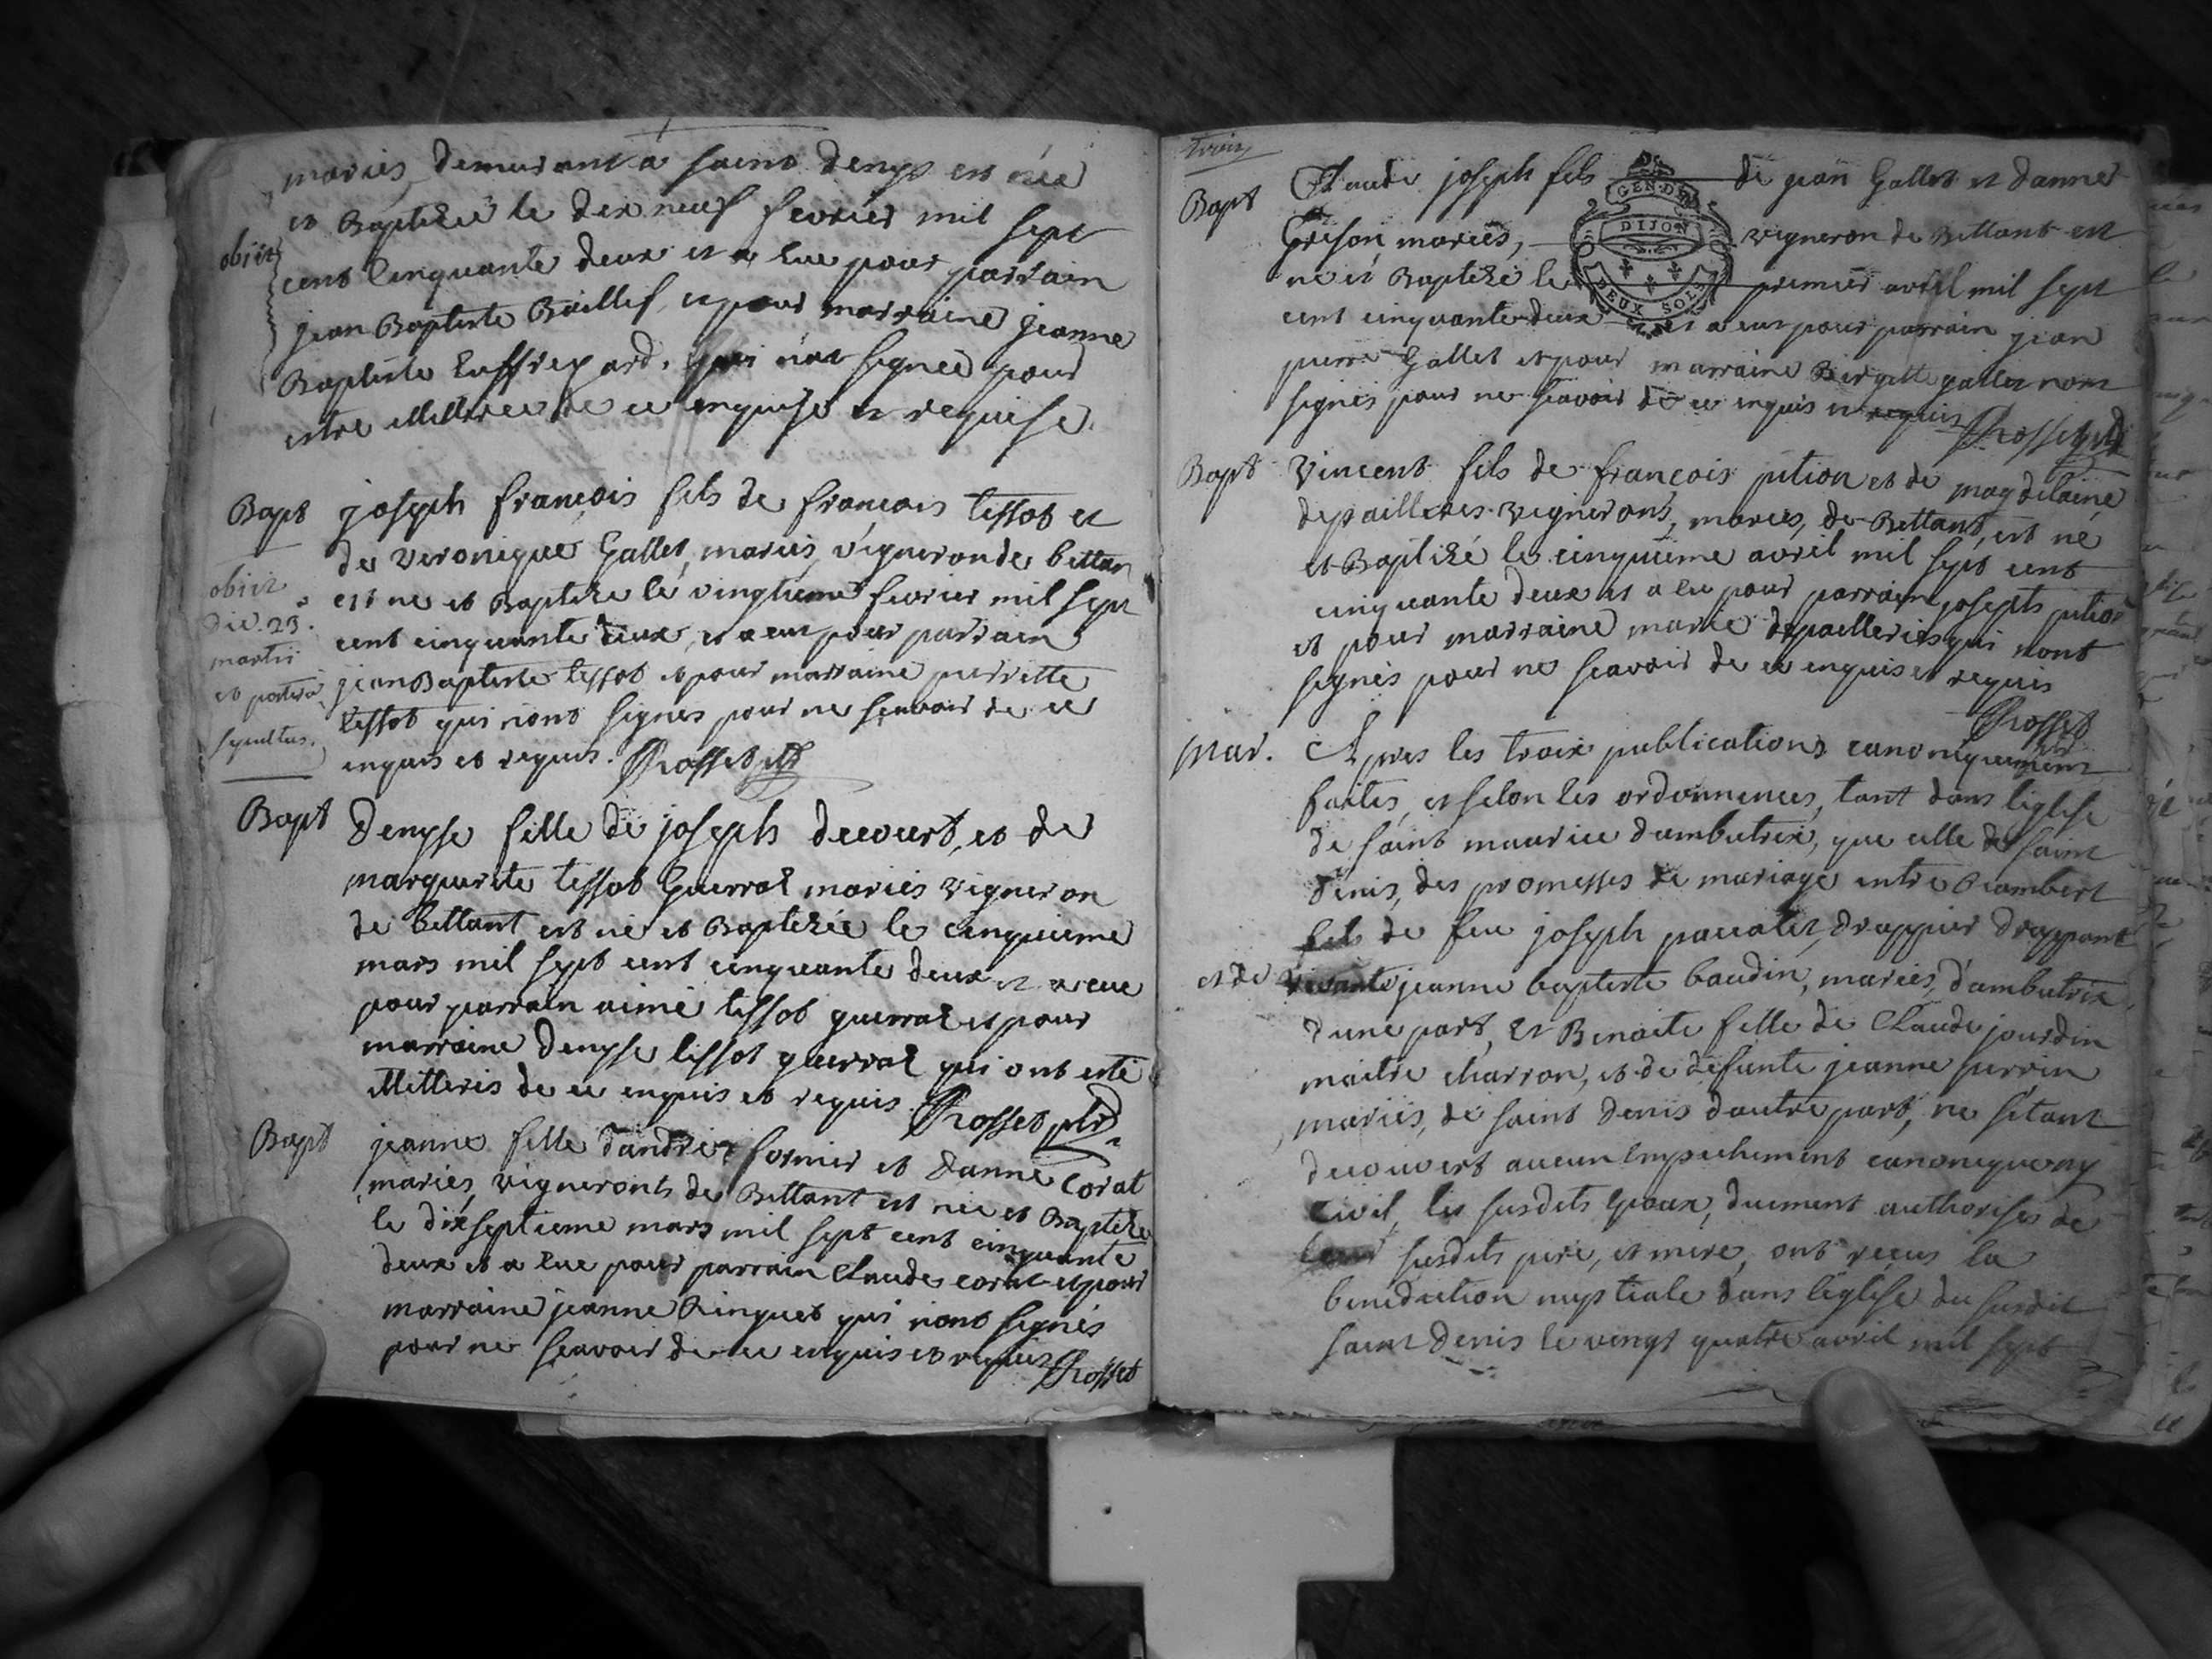 mariés demurant a saint denys est née
et Baptizeé le dix neuf fevrier mil sept
obiit
cent cinquante deux et a eue pour parrain
jean Baptiste Baillif et pour marraine jeanne
Baptiste qui n'at signeé pour
estre illittereé de ce enquise et requise.
Bapt joseph françois fils de francois tissot et
de veronique Gallet, mariés, vigneron de bettan
obiit
die. 23.
martii
et postera
sepultus.
est ne et Baptize le vingtieme fevrier mil sept
cent cinquante deux, et a eut pour parrain
jean Baptiste tissot et pour marraine pierrette
tissot qui n'ont signés pour ne scavoir de ce
enquis et requis. Rosset
Bapt Denyse fille de joseph decourt, et de
marguerite tissot Guerrat mariés vigneron
de Bettant est né et Baptizée le cinquieme
mars mil sept cent cinquante deux et a eue
pour parrain aimé tissot guerrat et pour
marraine Denyse tissot guerrat qui ont esté
illitteris de ce enquis et requis Rosset
Bapt jeanne fille d'andré fornier et danne Corat
mariés, vignerons de Bettant est née et Baptizé
le dixseptieme mars mil sept cent cinquante
deux et a eue pour parrain Claude corat et pour
marraine jeanne Ringuet qui n'ont signés
pour ne scavoir de ce enquis et requis Rosset
trois
Bapt Claude joseph fils de jean Gallet et danne
GEN. DE
DIJON
DEUX SOLS
Grison mariés, vigneron de Bettant est
né et Baptizé le premier avril mil sept
cent cinquante deux et a eut pour parrain jean
pierre Gallet et pour marraine Birgitte gallet nont
signés pour ne scavoir de ce enquis et requis Rosset
Bapt Vincent fils de francois pition et de magdelaine
depailleres vignerons, mariés, de Bettant, est né
et Baptizé le cinquieme avril mil sept cent
cinquante deux et a eu pour parrain joseph pition
et pour marraine marie depailleries qui n'ont
signés pour ne scavoir de ce enquis et requis
Rosset
mar. Apres les trois publications canoniquement
faites, et selon les ordonnences, tant dans l'eglise
de saint maurice d'ambutrix, que celle de saint
Denis, des promesses de mariage entre Rambert
fils de feu joseph paccalet, drappier drappant
et de jeanne baptiste baudin, mariés, d'ambutrix
d'une part, Et Benoite fille de Claude jourdin
maitre charron, et de defunte jeanne perrin
mariés, de saint Denis d'autre part, ne s'etant
decouvert aucun empechement canonique ny
Civil, les susdits epoux, duement authorisés de
susdits pere, et mere, ont reçus la
benediction nuptiale dans l'eglise du susdit
saint Denis le vingt quatre avril mil sept